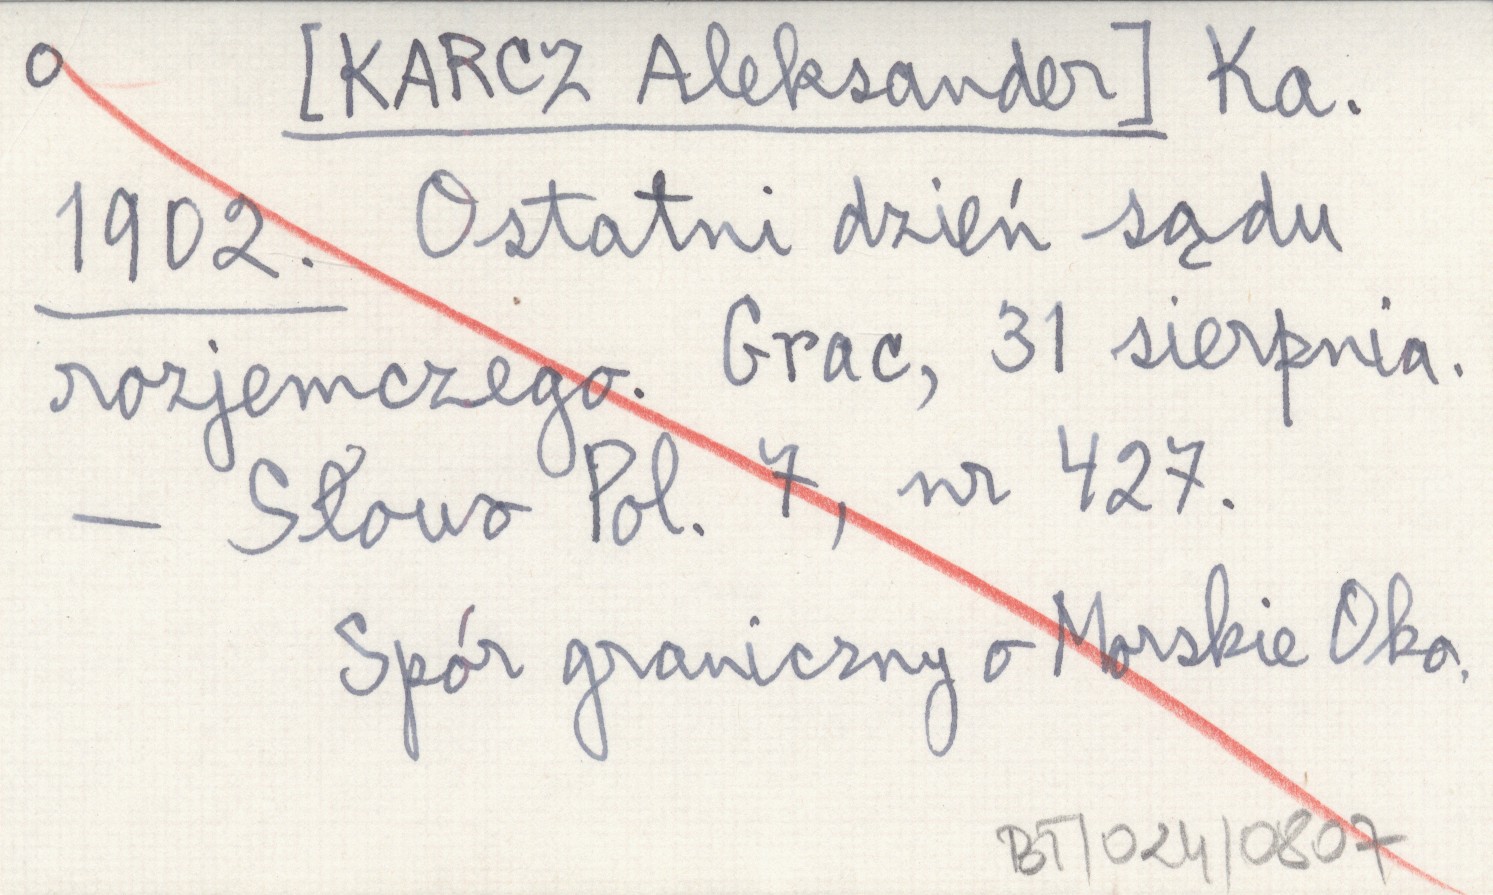 o [KARCZ Aleksander] Ka.
1902. Ostatni dzień sądu
rozjemczego. Grac, 31 sierpnia.
— Słowo Pol. 7, nr 427.
Spór graniczny o Morskie Oko.
BT/024/0807